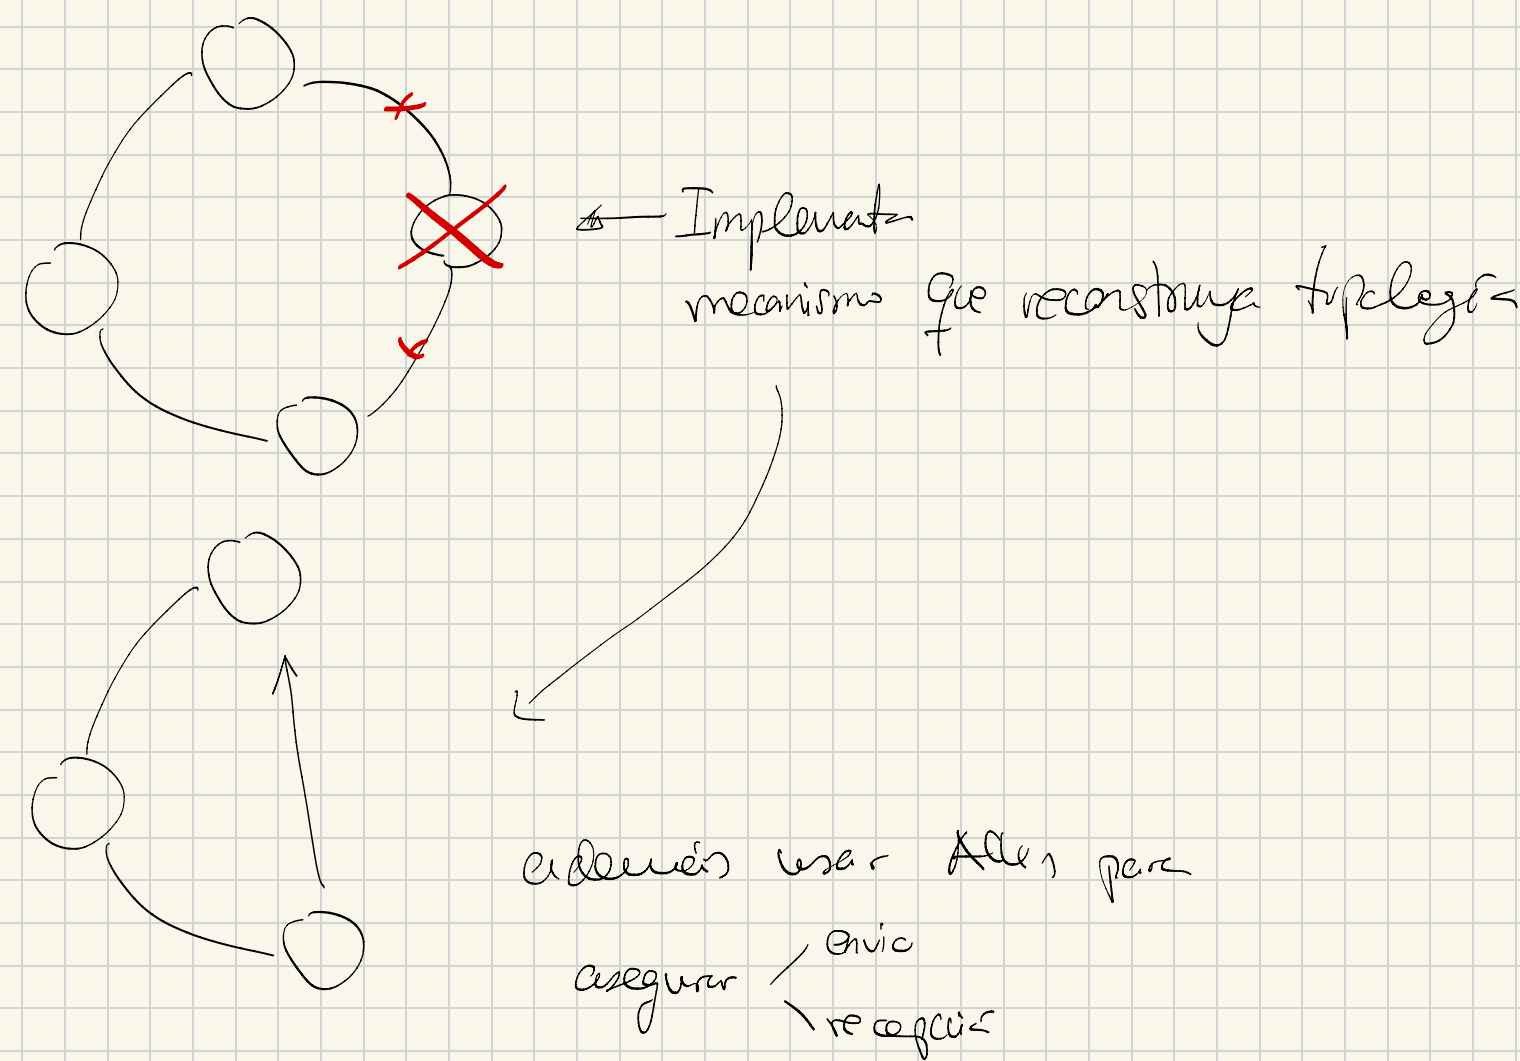 Implementa
mecanismo que reconstruya topología
además usar ACKs para
asegurar
envío
recepción